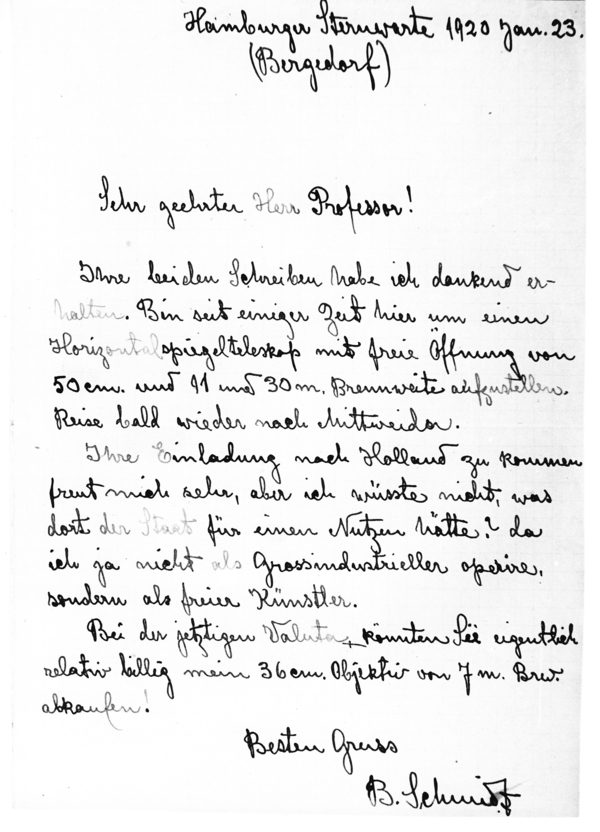 Hamburger Sternwarte 1920 Jan. 23.
(Bergedorf)
Sehr geehrter Herr Professor!
Ihre beiden Schreiben habe ich dankend er-
halten. Bin seit einiger Zeit hier um einen
Horizontalspiegelteleskop mit freie Öffnung von
50 cm. und 11 und 30 m. Brennweite aufzustellen.
Reise bald wieder nach Mittweida.
Ihre Einladung nach Holland zu kommen
freut mich sehr, aber ich wüsste nicht, was
dort der Staat für einen Nutzen hätte? da
ich ja nicht als Grossindustrieller operire,
sondern als freier Künstler.
Bei der jetztigen Valuta, könnten Sie eigentlich
relativ billig mein 36 cm. Objektiv von 7 m. Brw.
abkaufen!
Besten Gruss
B. Schmidt